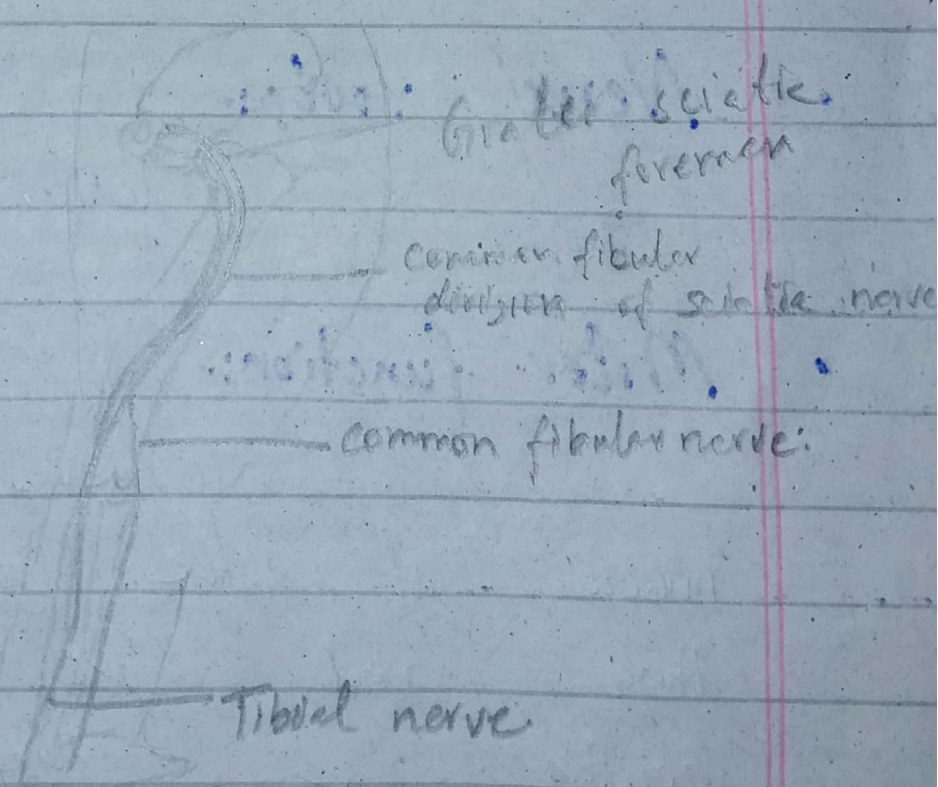 Greater sciatic
foremen
common fibular
division of sciatic nerve
common fibular nerve:
Tibial nerve